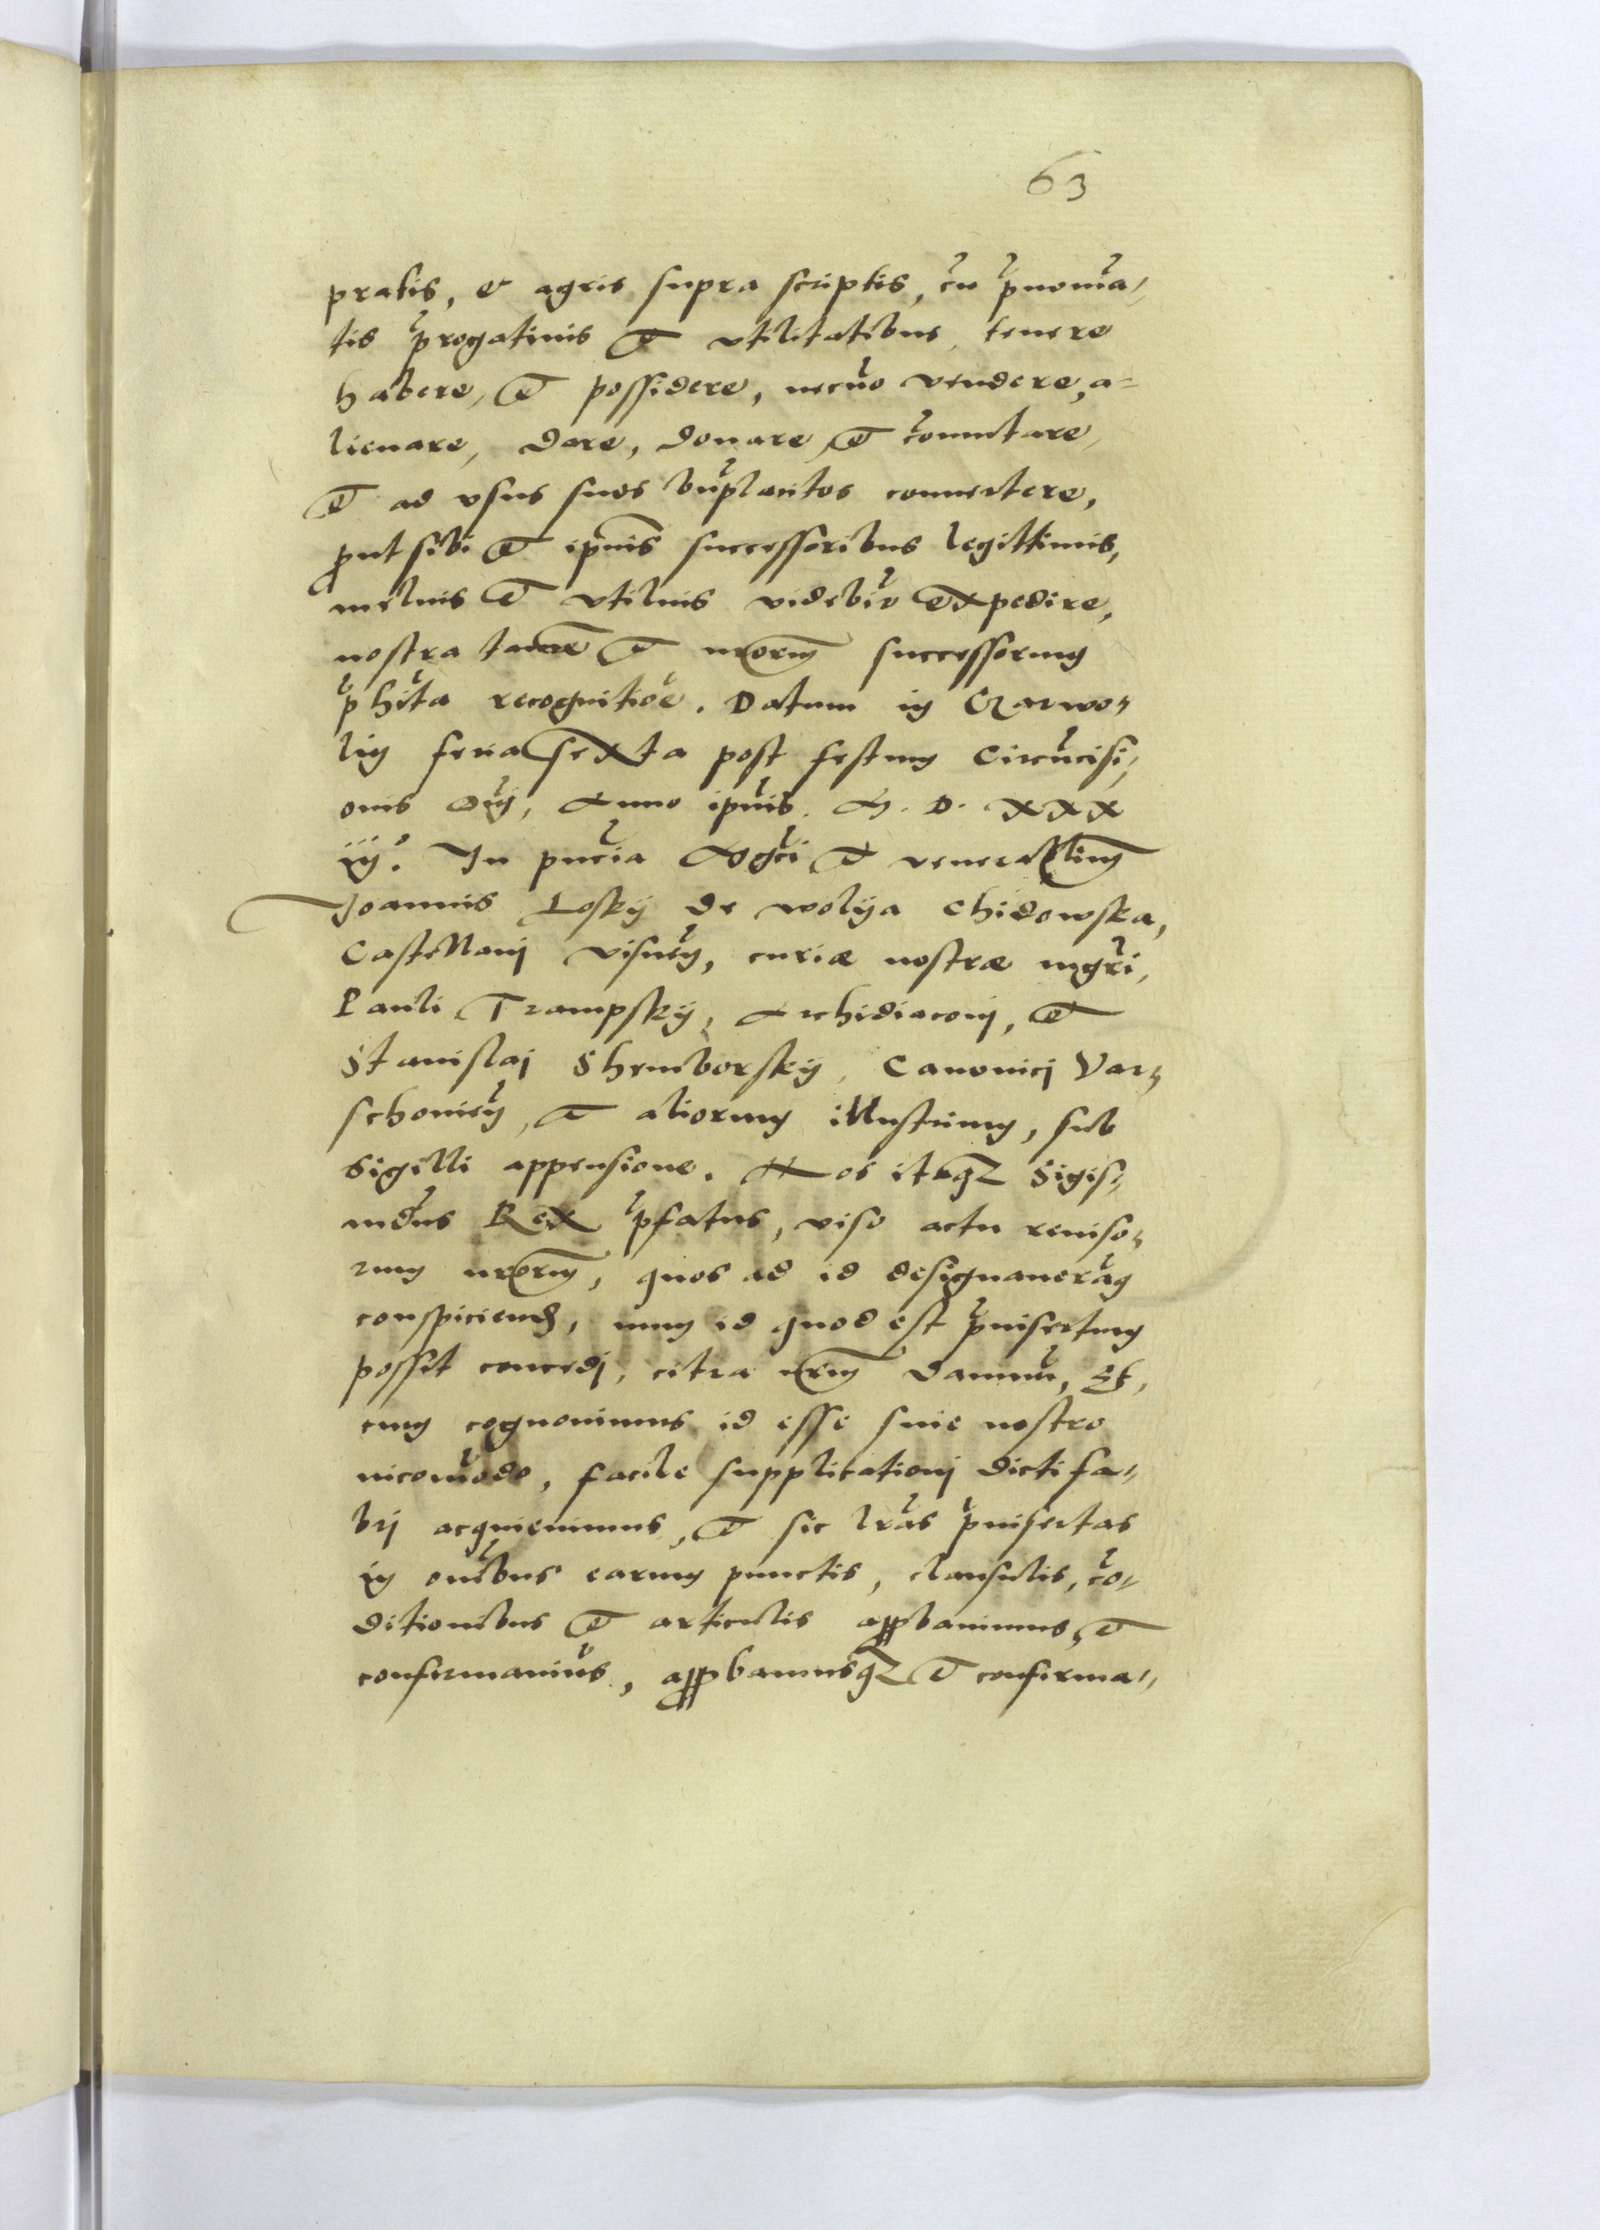 63
pratis, et agris supra scriptis, cũ p̃nomĩa-
tis p̃rogatiuis et vtilitatibus, tenere
habere, et possidere, necño vendere, a-
lienare, dare, donare et cõmutare,
et ad vsus suos bñplacitos conuertere,
prout sibi et ip̃ius successoribus legittimis,
melius et vtilius videbit̃ expedire,
nostra tamen et nr̃orum successorum
p̃hĩta recognitiõe. Datum in Czarwo-
lin feria sexta post festum Circũcisi-
onis Dñj, Anno ipũis. M. D. XXX
iij°. In pñcia Mgcĩ et venerabilium
Joannis Losky de wolya Chidowska,
Castellanj Visneñ, curiæ nostræ mgrĩ,
Pauli Trampsky, Archidiaconj, et
Stanislaj Shemborsky, Canonicj Var-
schouieñ, et aliorum illustrium, sub
sigilli appensione. Nos itaq3 Sigis-
mũdus Rex p̃fatus, viso actu reuiso-
rum nr̃orum, quos ad id designauerãm
conspiciend, num id quod est p̃insertum
possit concedj, citra nr̃um damnũ, Et,
cum cognouimus id esse sine nostro
incomõdo, facile supplicationj dicti fa-
brj acquieuimus, et sic lr̃as p̃insertas
in om̃ibus earum punctis, clausulis, cõ-
ditionibus et articulis approbauimus, et
confirmauim̃us, approbamusq3 et confirma-